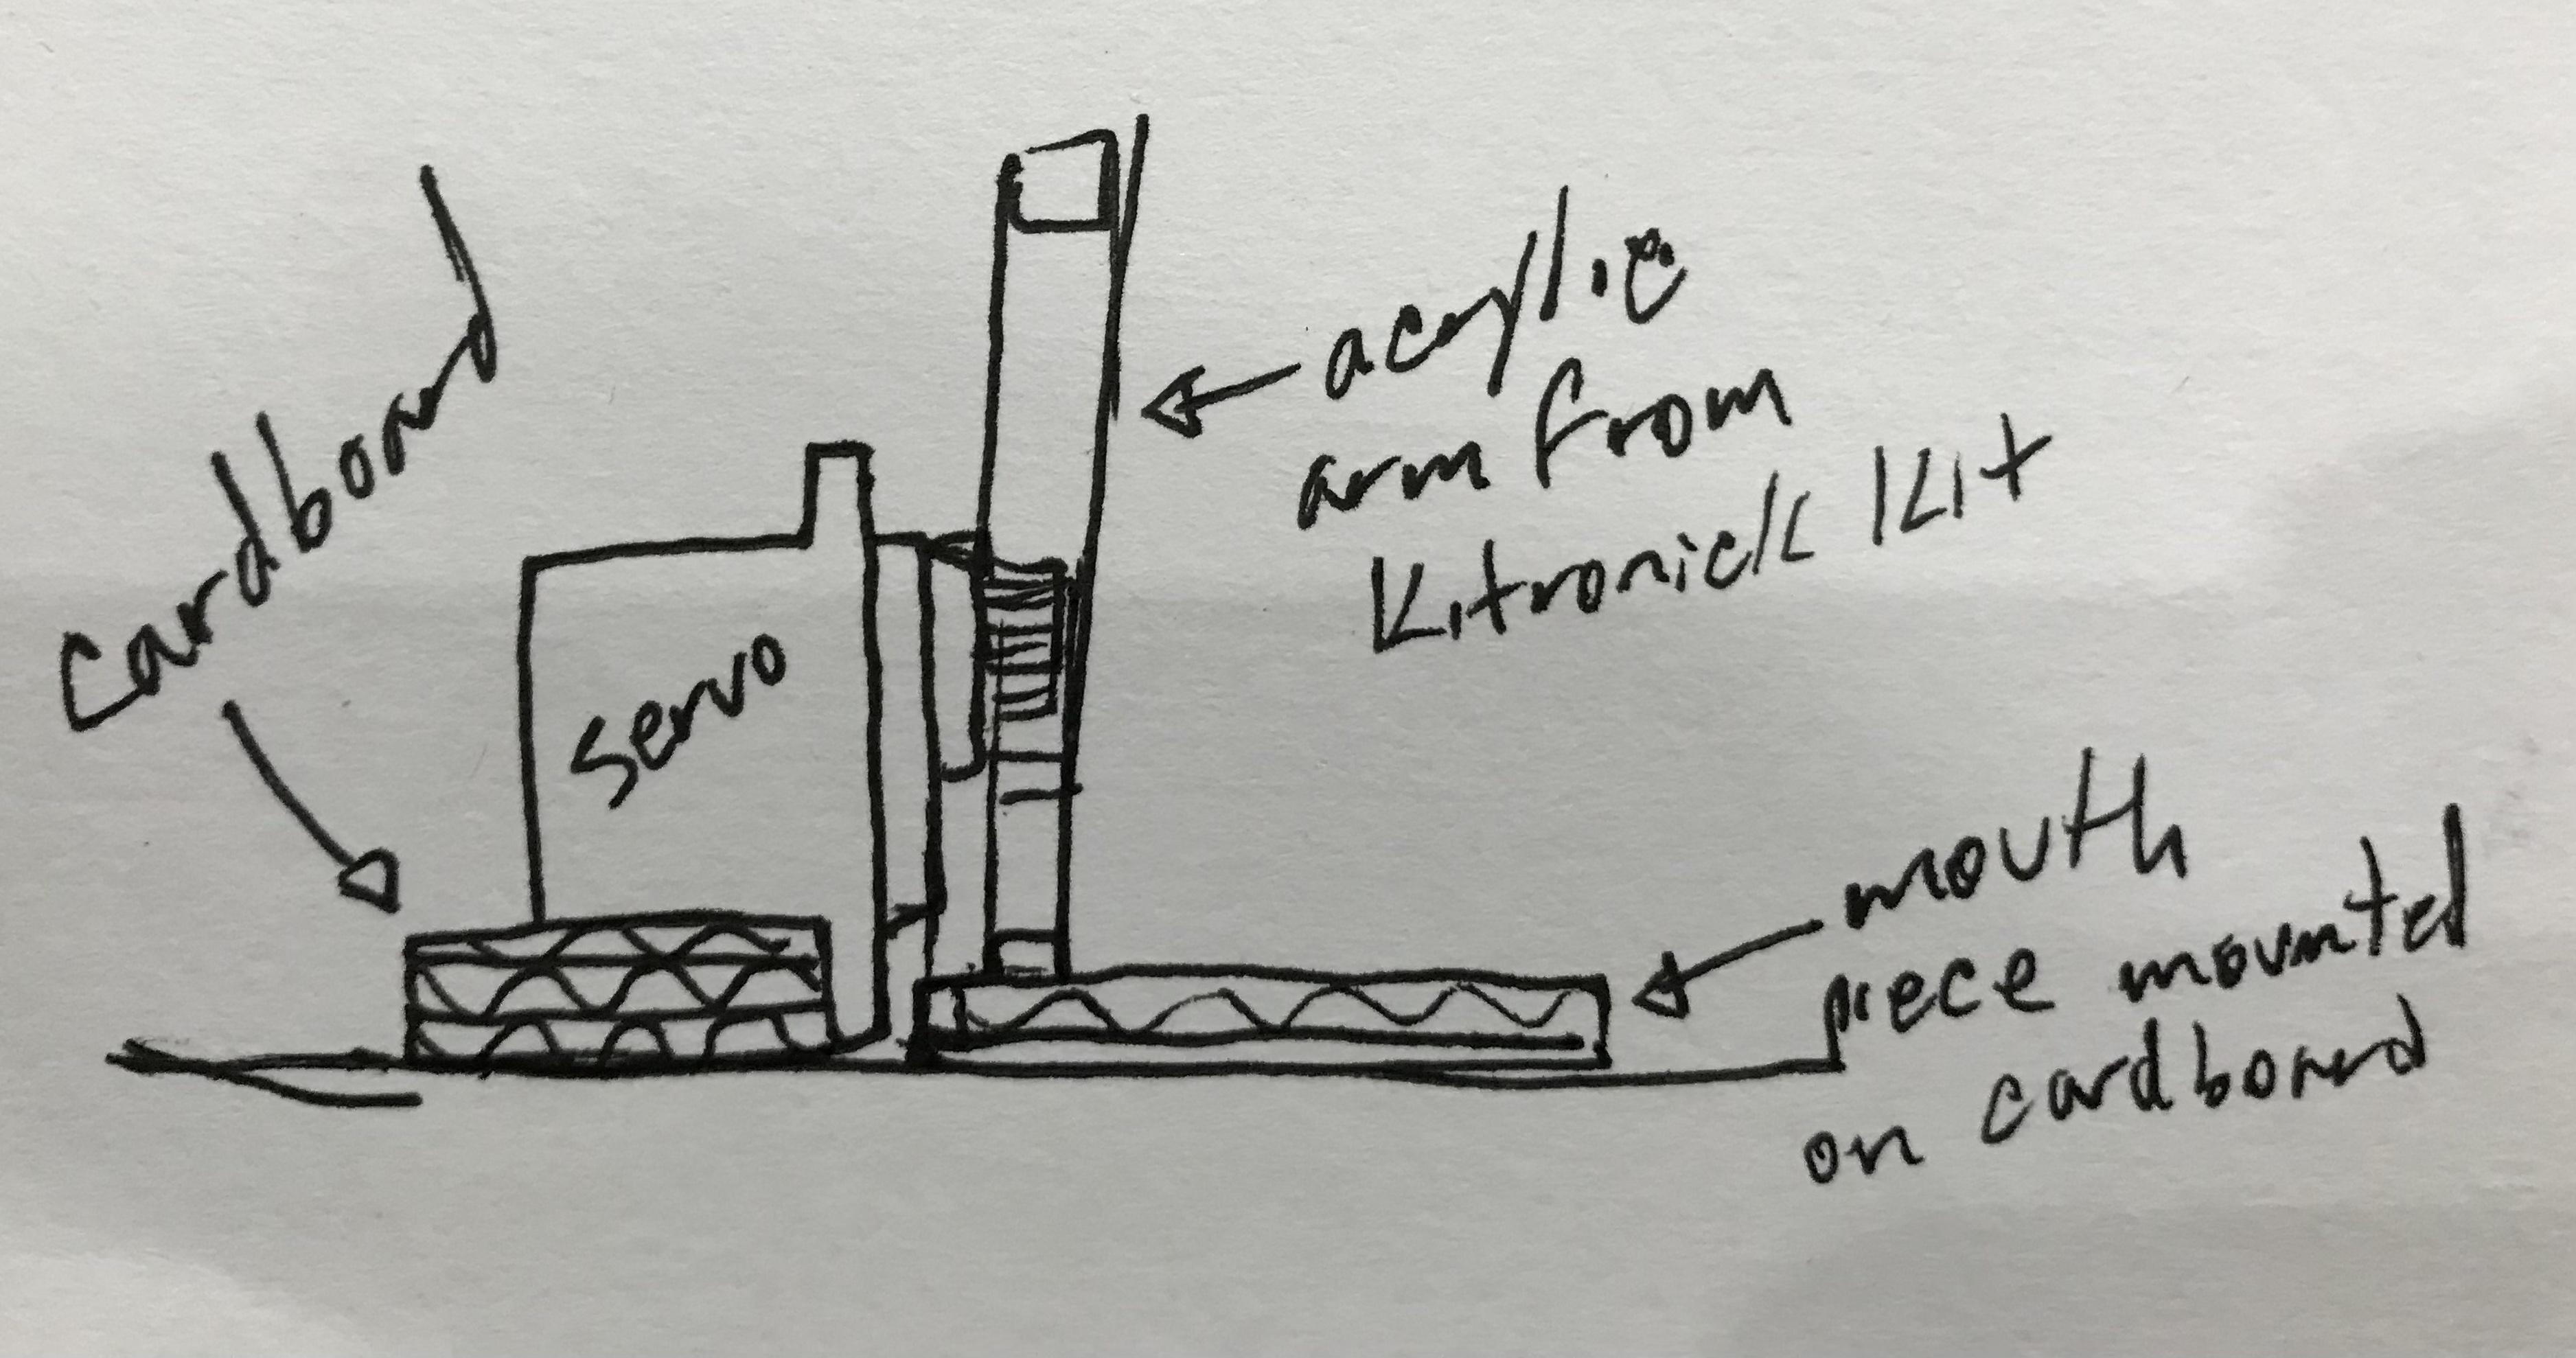 Cardboard
servo
acrylic
arm from
Kitronick Kit
mouth
piece mounted
on cardboard